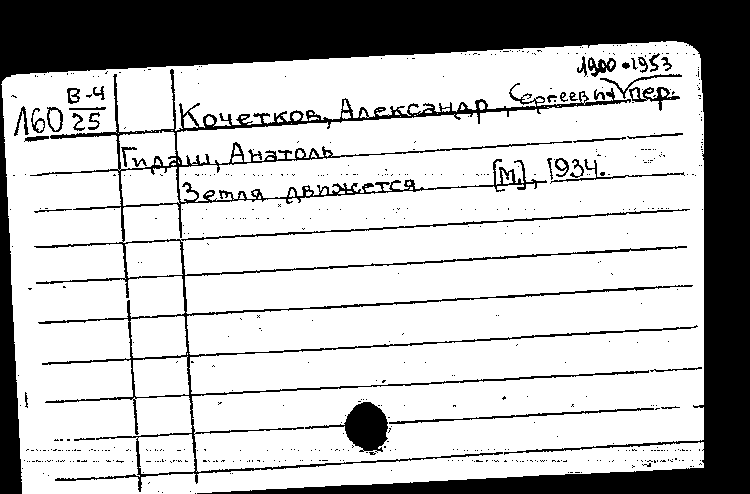 1900-1953
В-4
160 25
Кочетков, Александр Сергеевич, пер.
Гидаш, Анатоль
Земля движется. [М.], 1934.